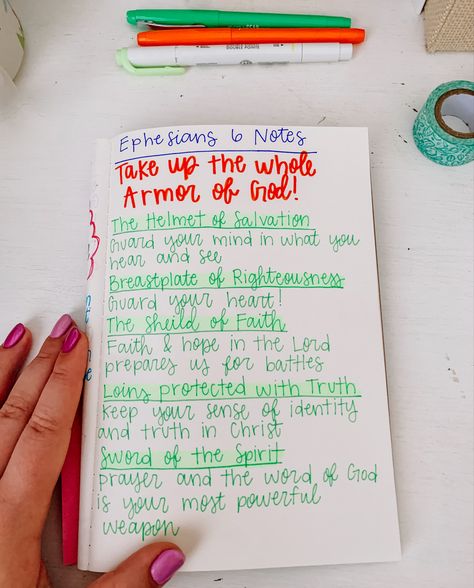 Ephesians 6 Notes
Take up the whole
Armor of God!
The Helmet of Salvation
Guard your mind in what you
hear and see
Breastplate of Righteousness
Guard your heart!
The Sheild of Faith
Faith & hope in the Lord
prepares us for battles
Loins protected with Truth
Keep your sense of identity
and truth in Christ
Sword of the Spirit
prayer and the word of God
is your most powerful
weapon